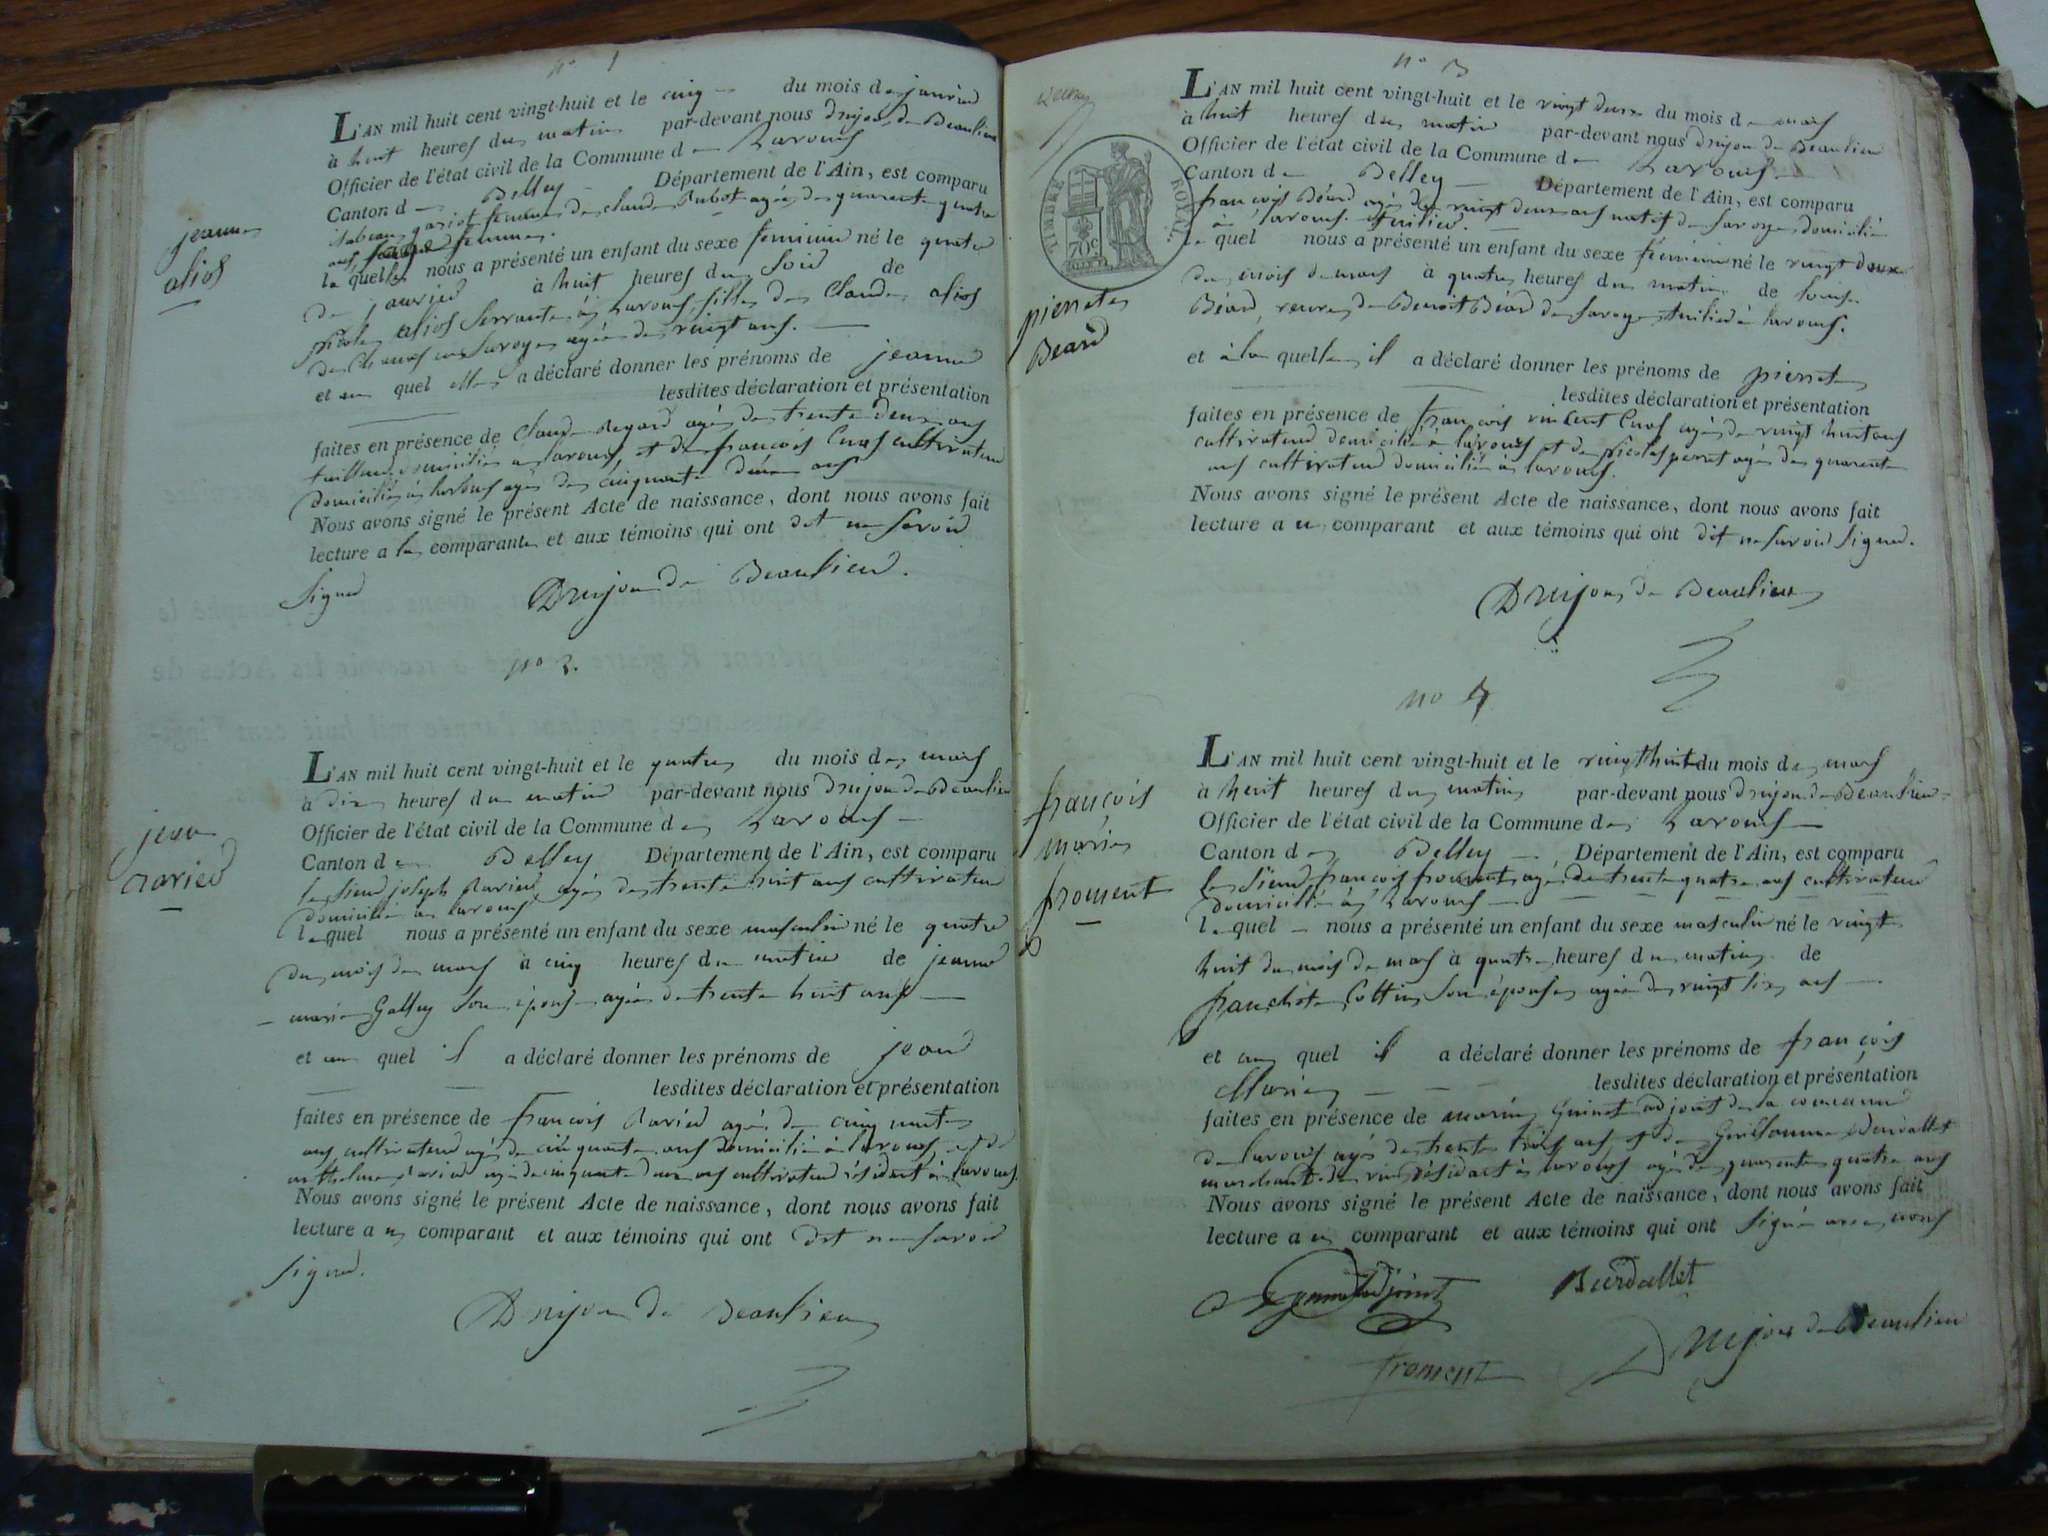 n° 1
L'AN mil huit cent vingt-huit et le cinq du mois de janvier
à huit heures du matin par-devant nous Drujon de Beaulieu
Officier de l'état civil de la Commune de Lavours
Canton de Belley Département de l'Ain, est comparu
femme de claude Rubot agée de quarante quatre
ans sage femme.
laquelle nous a présenté un enfant du sexe feminin né le quatre
de janvier à huit heures du soir de
alios servante à Lavours, fille de Claude alios
de en Savoye agée de vingt ans.
et au quel elle a déclaré donner les prénoms de jeanne
lesdites déclaration et présentation
faites en présence de claude Regard agé de trente deux ans
domicilié à lavours, et de francois Cuas cultivateur
domicilié à lavours agé de cinquante deux ans
Nous avons signé le présent Acte de naissance, dont nous avons fait
lecture a la comparante et aux témoins qui ont dit ne savoir
signer
Drujon de Beaulieu.
jeanne
alios
n° 2.
L'AN mil huit cent vingt-huit et le quatre du mois de mars
à dix heures du matin par-devant nous drujon de Beaulieu
Officier de l'état civil de la Commune de Lavours
Canton de Belley Département de l'Ain, est comparu
le sieur joseph agé de trente huit ans cultivateur
domicilié à lavours
lequel nous a présenté un enfant du sexe masculin né le quatre
du mois de mars à cinq heures du matin de jeanne
marie Gallay son épouse agée de trente huit ans
et au quel il a déclaré donner les prénoms de jean
lesdites déclaration et présentation
faites en présence de francois agé de cinquante
ans cultivateur agé de cinquante ans domicilié à lavours, et de
anthelme agé de cinquante deux ans cultivateur résidant à lavours.
Nous avons signé le présent Acte de naissance, dont nous avons fait
lecture a u comparant et aux témoins qui ont dit ne savoir
signer.
Drujon de Beaulieu
jean
n° 3
L'AN mil huit cent vingt-huit et le vingt deux du mois de mars
à huit heures du matin par-devant nous drujon de Beaulieu
Officier de l'état civil de la Commune de Lavours
Canton de Belley Département de l'Ain, est comparu
françois Béard agé de vingt deux ans natif de Savoye, domicilié
à lavours. tuilier.
lequel nous a présenté un enfant du sexe feminin né le vingt deux
du mois de mars à quatre heures du matin de louise
Béard, veuve de Benoit Béard de Savoye, tuilier à lavours.
et à la quelle il a déclaré donner les prénoms de pierrete
lesdites déclaration et présentation
faites en présence de françois vincent Cuas agé de vingt huit ans
cultivateur domicilié à lavours et de perret agé de quarante
ans cultivateur domicilié à lavours.
Nous avons signé le présent Acte de naissance, dont nous avons fait
lecture a u comparant et aux témoins qui ont dit ne savoir signer.
Drujon de Beaulieu
TIMBRE ROYAL
70c
pierrete
Beard
n° 4
L'AN mil huit cent vingt-huit et le vingt huit du mois de mars
à huit heures du matin par-devant nous drujon de Beaulieu
Officier de l'état civil de la Commune de Lavours
Canton de Belley Département de l'Ain, est comparu
le Sieur françois froment agé de trente quatre ans cultivateur
domicilié à Lavours
lequel nous a présenté un enfant du sexe masculin né le vingt
huit du mois de mars à quatre heures du matin de
Cottin son épouse agée de vingt six ans
et au quel il a déclaré donner les prénoms de françois
Marie
lesdites déclaration et présentation
faites en présence de marin Guinet adjoint de la commune
de lavours agé de trente trois ans et de Guillaume Burdallet
marchant de vin résidant à lavours agé de quarante quatre ans
Nous avons signé le présent Acte de naissance, dont nous avons fait
lecture a u comparant et aux témoins qui ont signé avec nous
adjoint
Burdallet
Drujon de Beaulieu
froment
françois
marie
froment